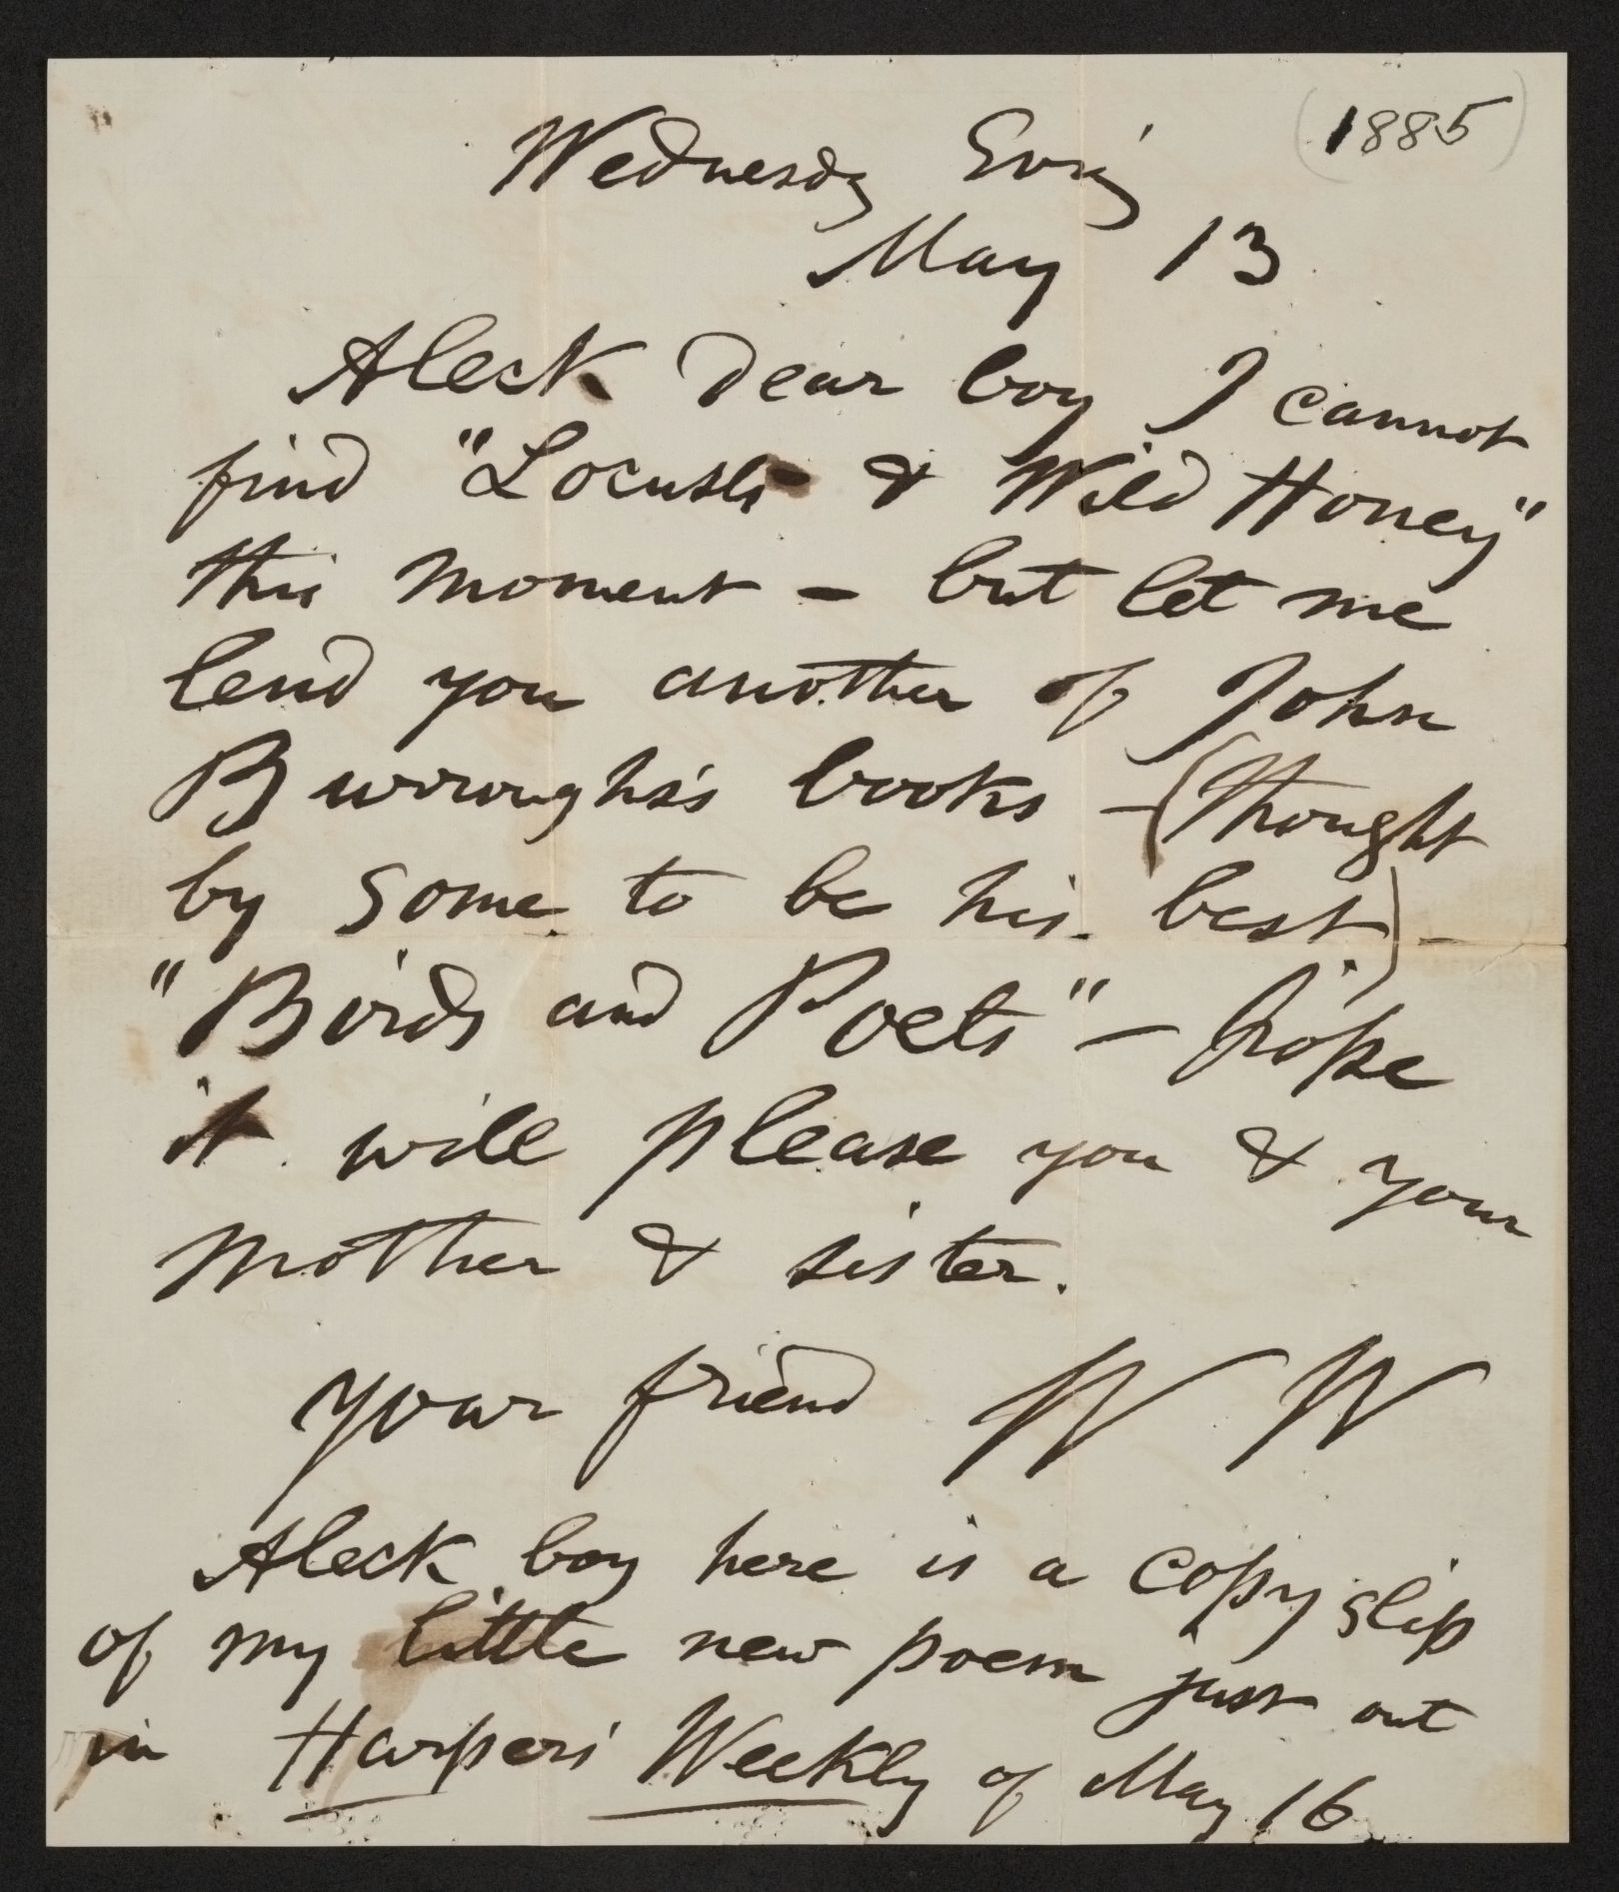 Wednesdy Evn'g
(1885)
May 13
Aleck dear boy I cannot
find "Locusts & Wild Honey"
this moment - but let me
lend you another of John
Burroughs's books - (thought
by some to be his best) -
"Birds and Poets" - hope
it will please you & your
mother & sister.
your friend W W
Aleck boy here is a copy slip
of my little new poem just out
in Harpers' Weekly of May 16